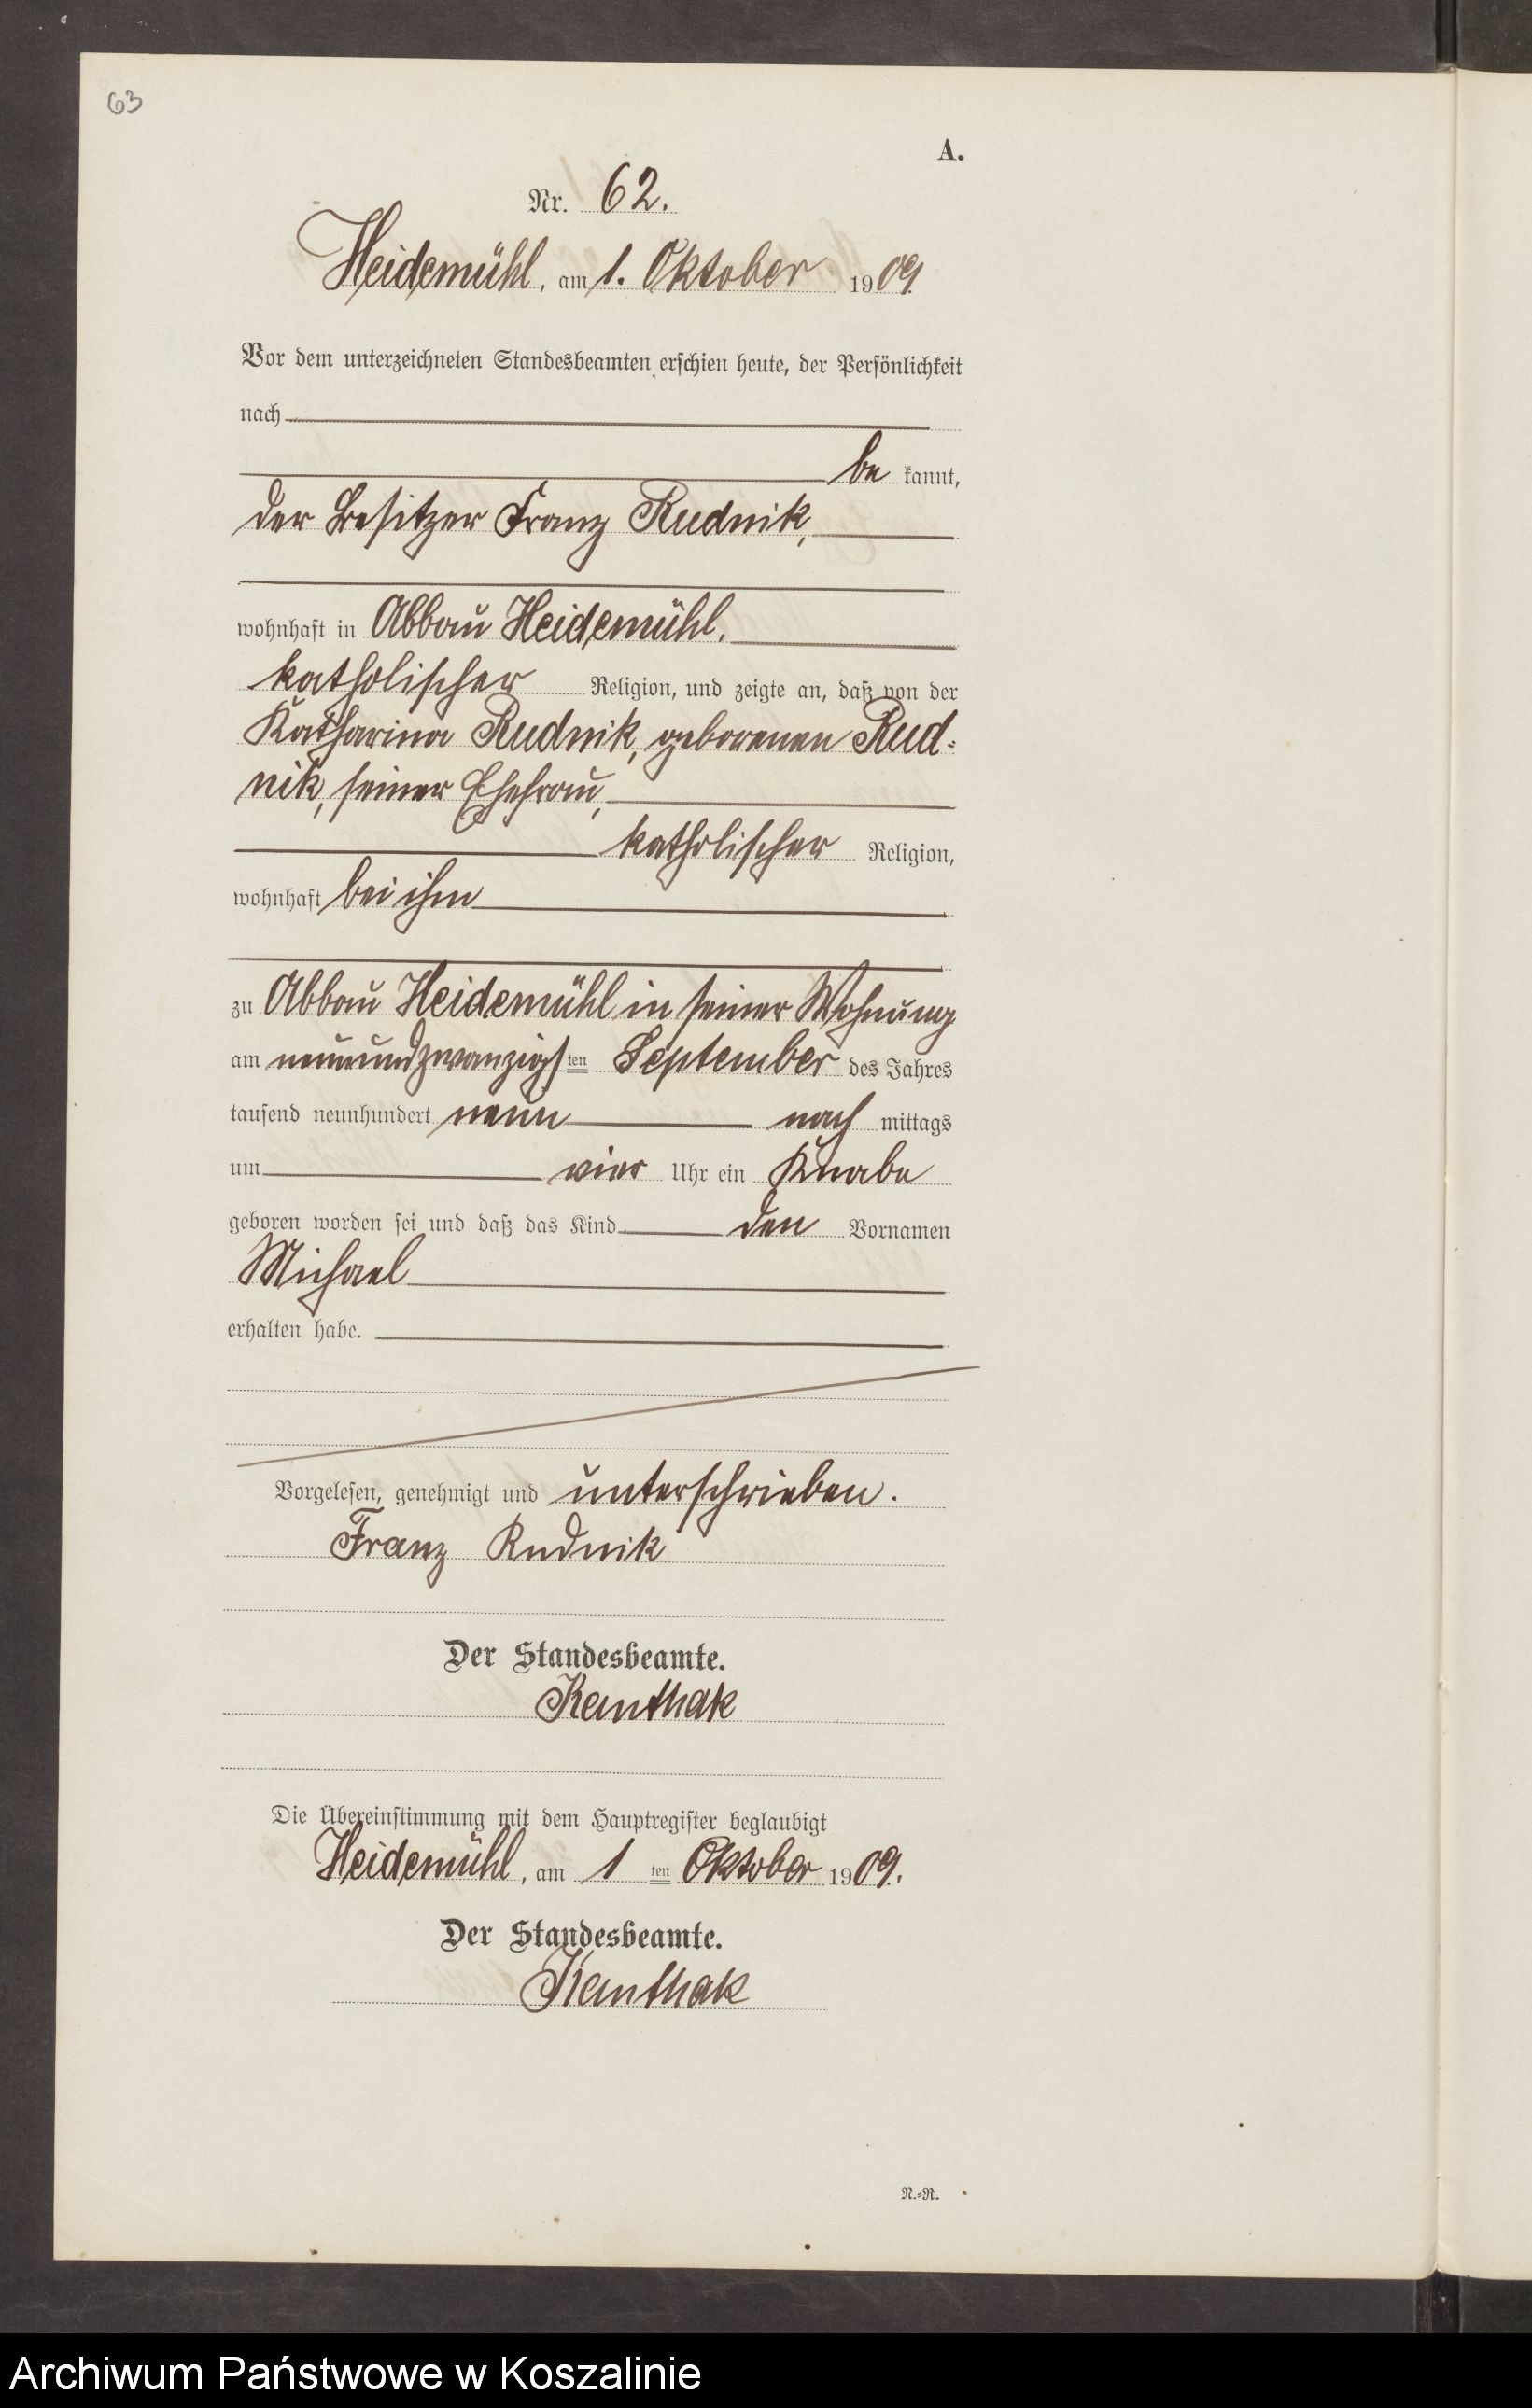 63
A.
Nr. 62.
Heidemühl, am 1. Oktober 1909
Vor dem unterzeichneten Standesbeamten erschien heute, der Persönlichkeit
nach
be kannt,
der Besitzer Franz Rudnik,
wohnhaft in Abbau Heidemühl,
katholischer Religion, und zeigte an, daß von der
Katharina Rudnik, geborenen Rud-
nik, seiner Ehefrau,
katholischer Religion,
wohnhaft bei ihm
zu Abbau Heidemühl in seiner Wohnung
am neunundzwanzigsten September des Jahres
tausend neunhundert neun nach mittags
um vier Uhr ein Knabe
geboren worden sei und daß das Kind den Vornamen
Michael
erhalten habe.
Vorgelesen, genehmigt und unterschrieben.
Franz Rudnik
Der Standesbeamte.
Kanthak
Die Übereinstimmung mit dem Hauptregister beglaubigt
Heidemühl, am 1 ten Oktober 1909.
Der Standesbeamte.
Kanthak
N.-R.
Archiwum Państwowe w Koszalinie